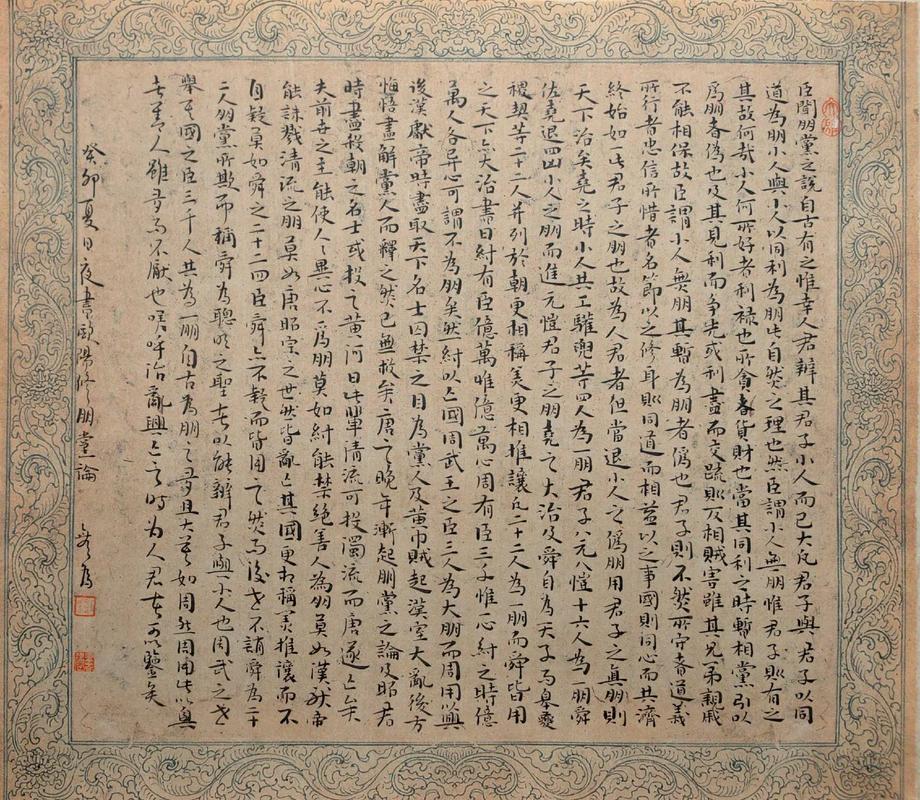 臣聞朋黨之說自古有之惟幸人君辨其君子小人而已大凡君子與君子以同
道為朋小人與小人以同利為朋此自然之理也然臣謂小人無朋惟君子則有之
其故何哉小人所好者利祿也所貪者貨財也當其同利之時暫相黨引以
為朋者偽也及其見利而爭先或利盡而交疏則反相賊害雖其兄弟親戚
不能相保故臣謂小人無朋其暫為朋者偽也君子則不然所守者道義
所行者忠信所惜者名節以之修身則同道而相益以之事國則同心而共濟
終始如一此君子之朋也故為人君者但當退小人之偽朋用君子之真朋則
天下治矣堯之時小人共工驩兜等四人為一朋君子八元八愷十六人為一朋舜
佐堯退四凶小人之朋而進元愷君子之朋堯之大治及舜自為天子而皋夔
稷契等二十二人并列於朝更相稱美更相推讓凡二十二人為一朋而舜皆用
之天下亦大治書曰紂有臣億萬惟億萬心周有臣三千惟一心紂之時億
萬人各異心可謂不為朋矣然紂以亡國周武王之臣三千人為大朋而周用以興
後漢獻帝時盡取天下名士囚禁之目為黨人及黃巾賊起漢室大亂後方
悔悟盡解黨人而釋之然已無救矣唐之晚年漸起朋黨之論及昭宗
時盡殺朝之名士或投之黃河曰此輩清流可投濁流而唐遂亡矣
夫前世之主能使人人異心不為朋莫如紂能禁絕善人為朋莫如漢獻帝
能誅戮清流之朋莫如唐昭宗之世然皆亂亡其國更相稱美推讓而不
自疑莫如舜之二十二臣舜亦不疑而皆用之然而後世不誚舜為二十
二人朋黨所欺而稱舜為聰明之聖者以能辨君子與小人也周武之世
舉其國之臣三千人共為一朋自古為朋之多且大莫如周然周用此以興
者善人雖多而不厭也嗟呼治亂興亡之時為人君者可以鑒矣
癸卯夏日夜書歐陽修之朋黨論